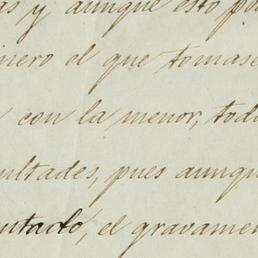 as y aunque esto po
nero el que tomase
con la menor, tod
ultades, pues aunqu
entado, el gravame